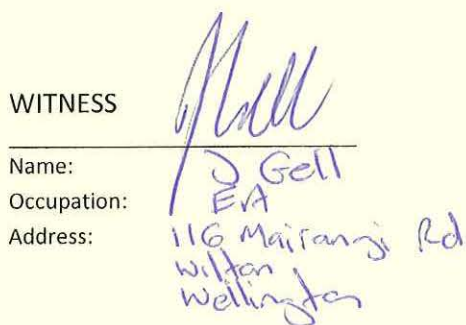 WITNESS
Name: J Gell
Occupation: EA
Address: 116 Mairangi Rd
Wilton
Wellington